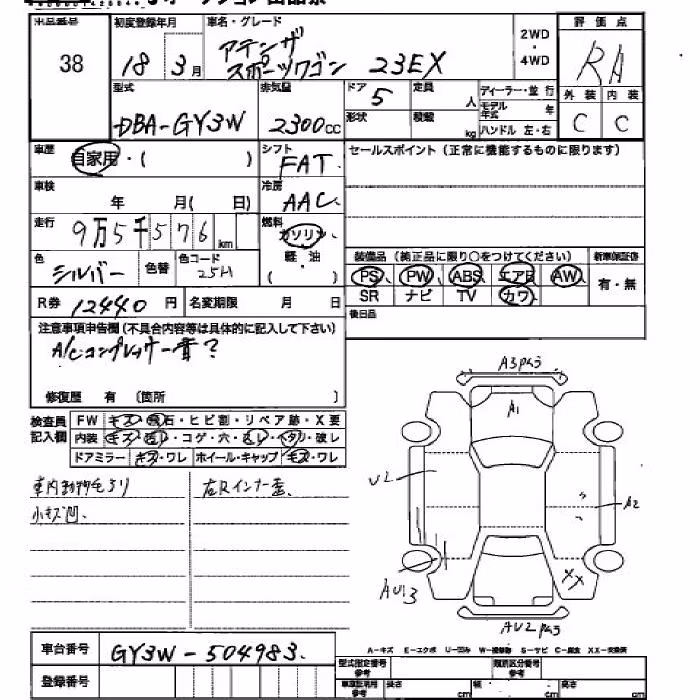 出品番号 初度登録年月 車名・グレード 2WD・4WD 評価点
38 18 3月 アテンザ スポーツワゴン 23EX RA
型式 排気量 ドア 5 定員 人 ディーラー・並行 外装 内装
DBA-GY3W 2300cc 形状 積載 kg モデル年式 年 ハンドル 左・右 C C
車歴 自家用・( ) シフト FAT セールスポイント(正常に機能するものに限ります)
車検 年 月( 日) 冷房 AAC
走行 9万5千576km 燃料 ガソリン 軽・油 ( )
色 シルバー 色替 色コード 25H 装備品(純正品に限り○をつけてください) 新車保証書
PS PW ABS エアB AW 有・無
R券 12440円 名変期限 月 日 SR ナビ TV カワ
注意事項申告欄(不具合内容等は具体的に記入して下さい) 後日品
A/Cコンプレッサー音?
修復歴 有 (箇所 )
検査員記入欄 FW キズ・飛石・ヒビ割・リペア跡・X要
内装 キズ・汚レ・コゲ・穴・スレ・ヘタリ・破レ
ドアミラー キズ・ワレ ホイール・キャップ キズ・ワレ
車内動物毛あり 右Rインナー歪、
小キズ凹、
A3 P43
A1
U2
A2
AU13
XX
AU2 P43
A-キズ E-エクボ U-凹み W-補修跡 S-サビ C-腐食 XX-交換済
車台番号 GY3W-504983.
登録番号
型式指定番号 参考 類別区分番号 参考
車庫証明用 参考 長さ cm 幅 cm 高さ cm